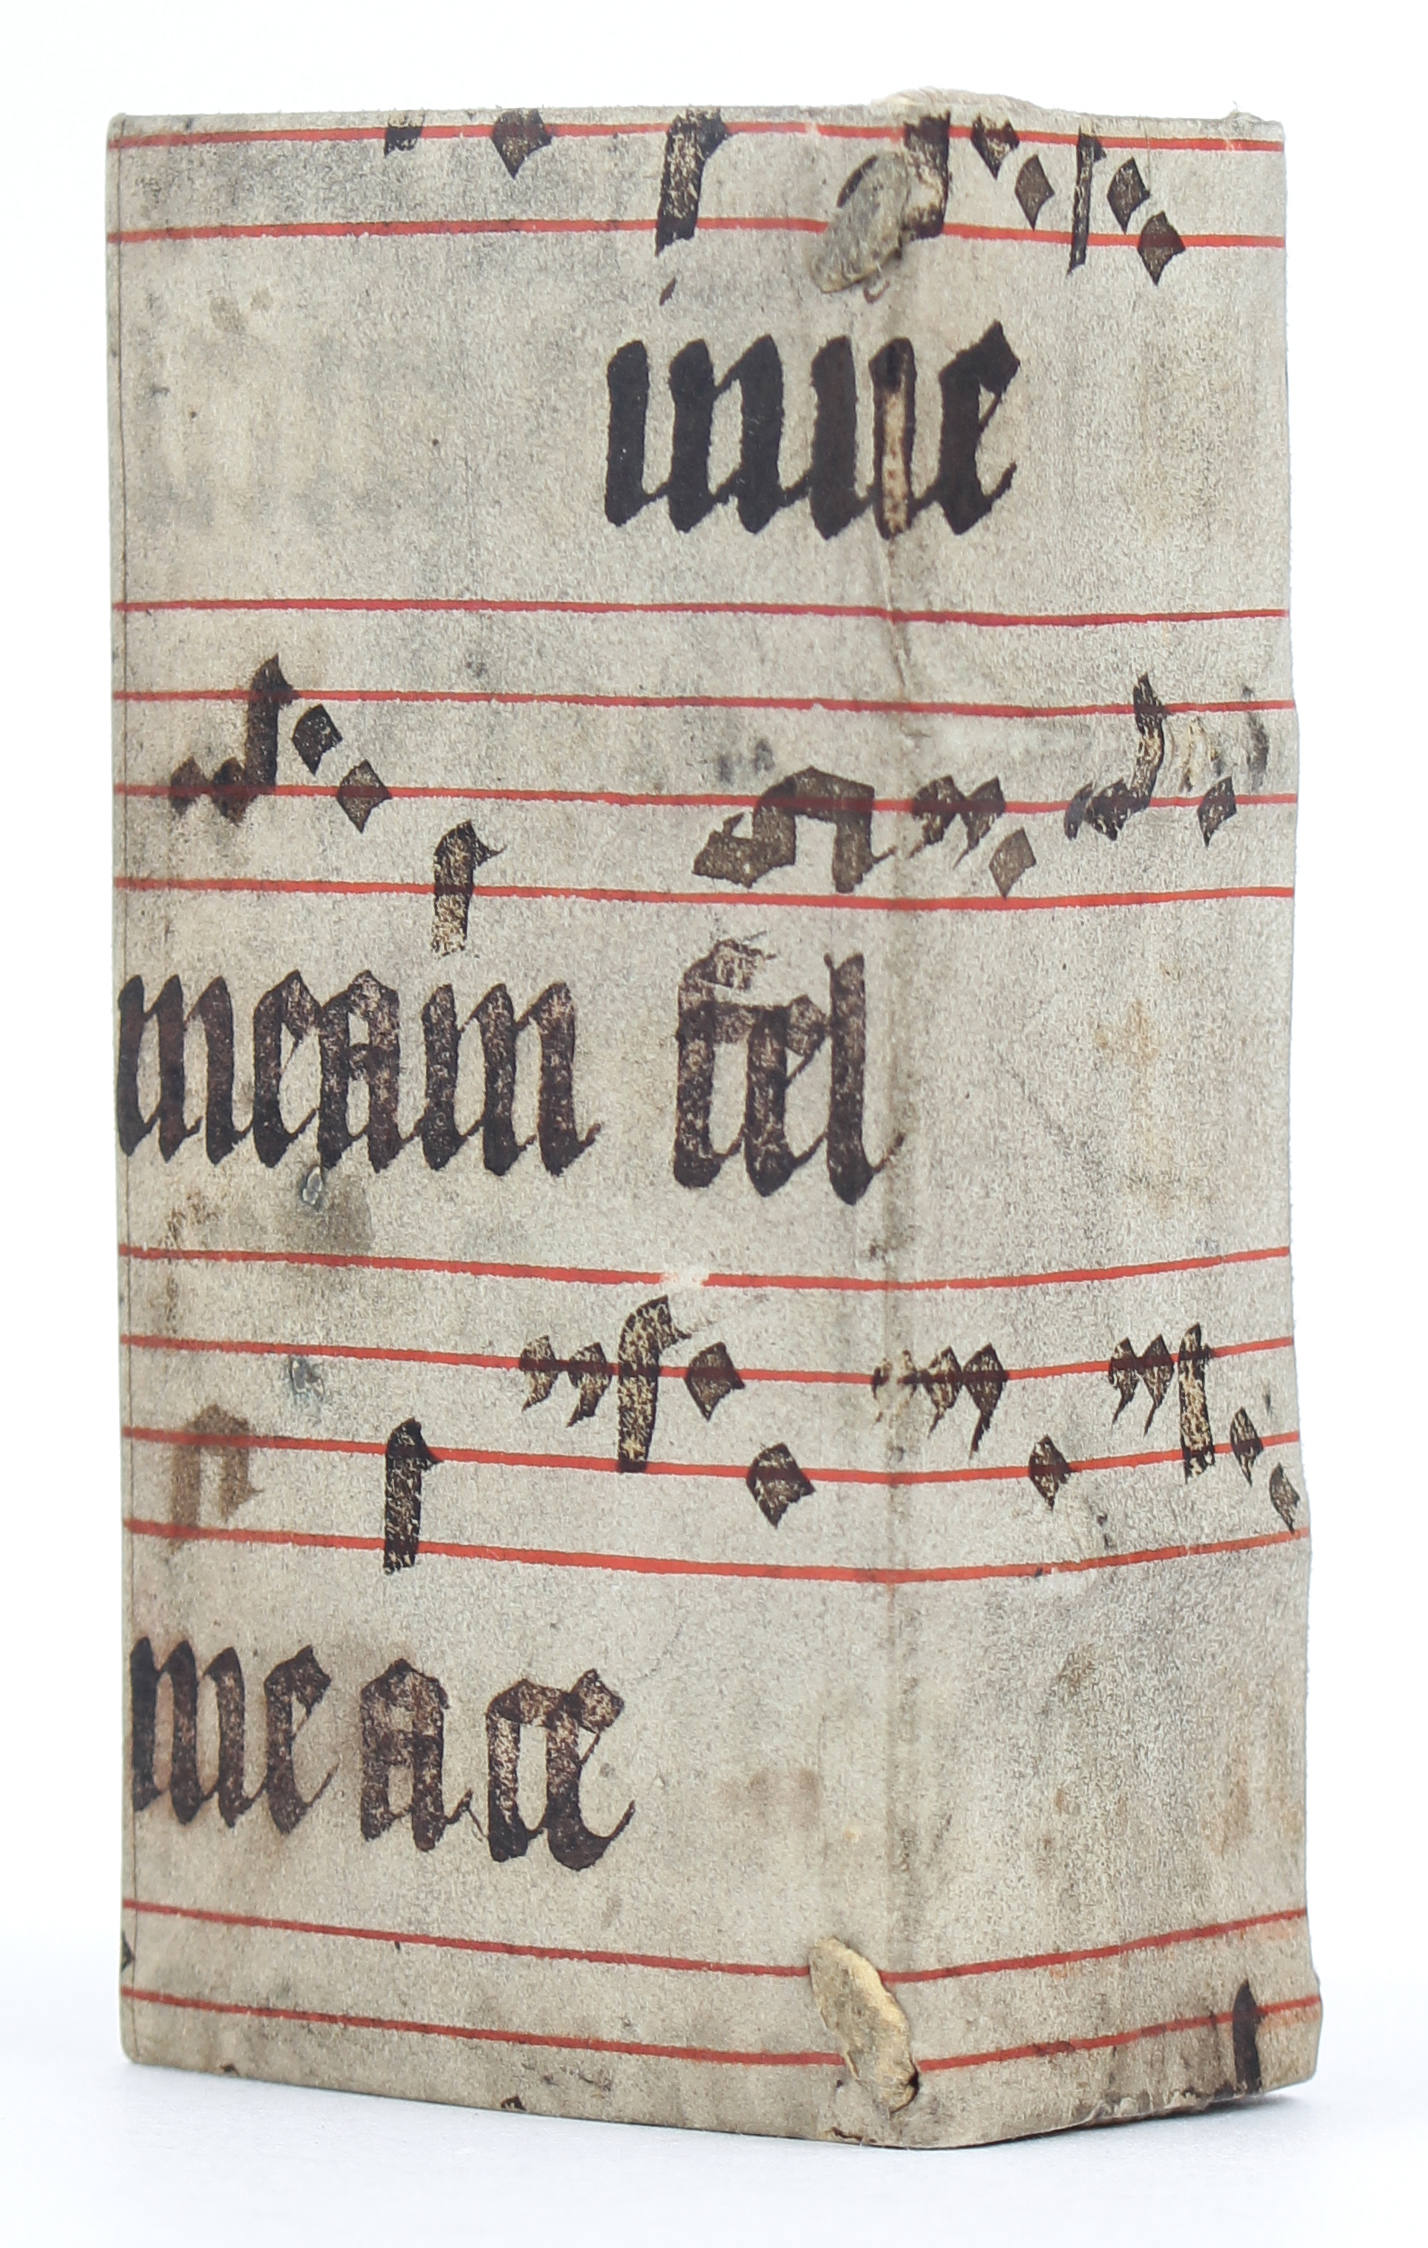 inue
meam fel
me ace